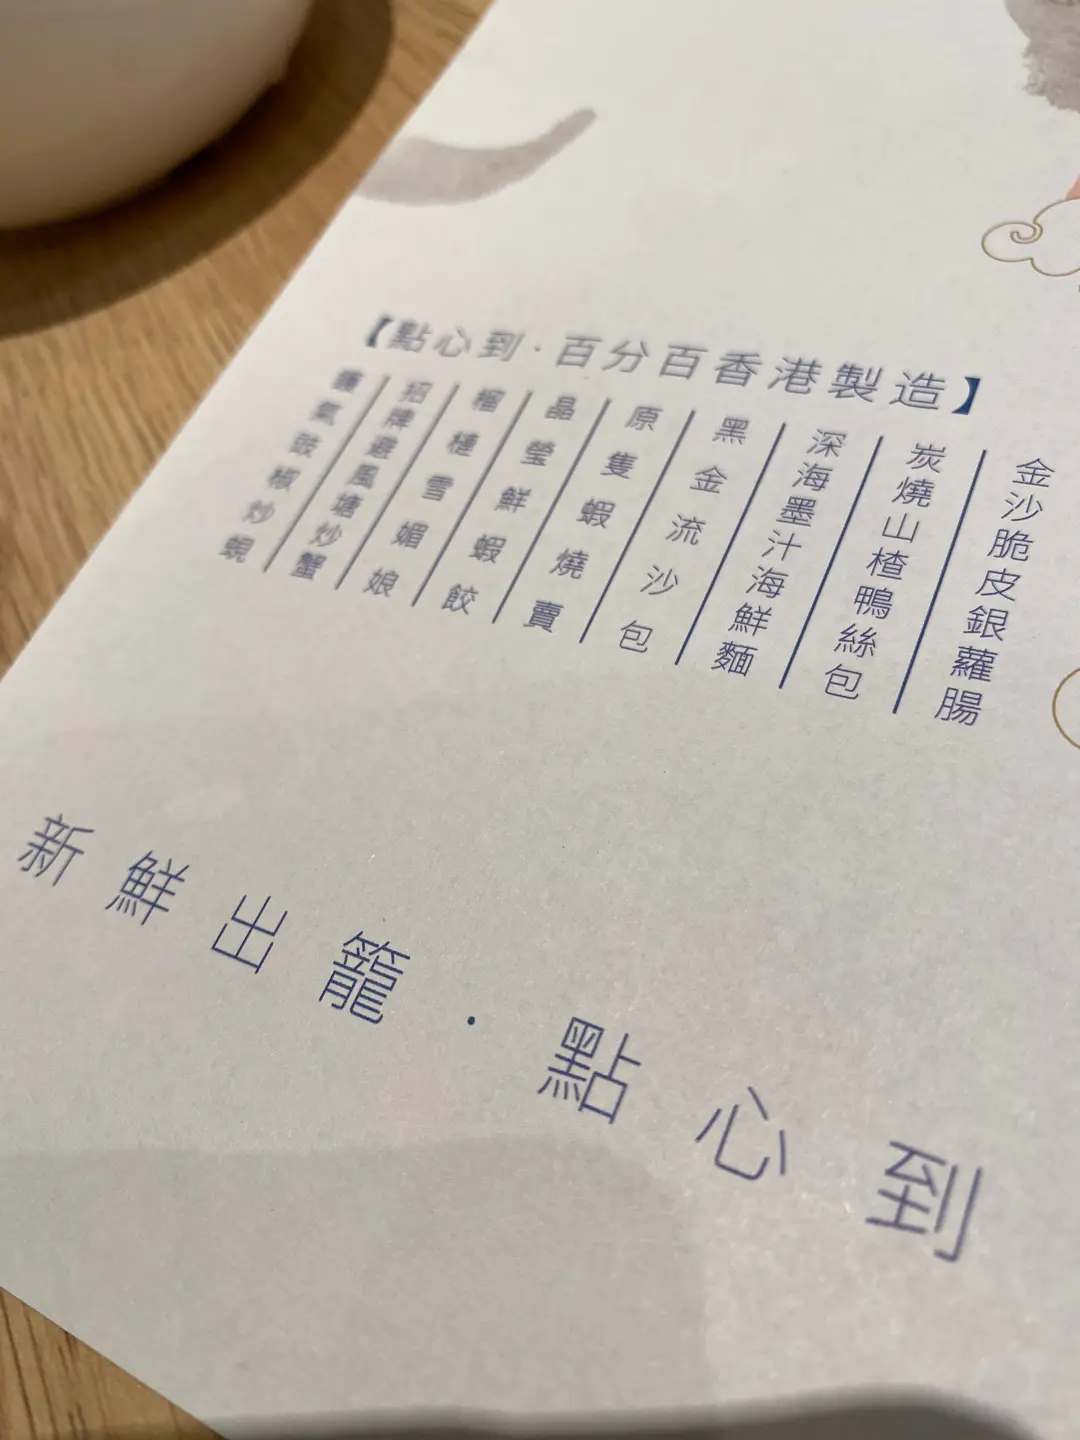 【點心到·百分百香港製造】
金沙脆皮銀蘿腸
炭燒山楂鴨絲包
深海墨汁海鮮麵
黑金流沙包
原隻蝦燒賣
晶瑩鮮蝦餃
榴槤雪媚娘
招牌避風塘炒蟹
鑊氣豉椒炒蜆
新鮮出籠·點心到